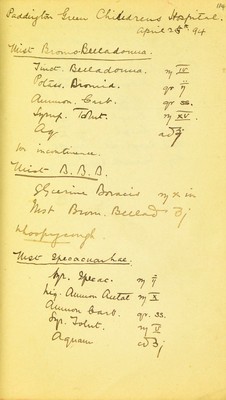 114
Paddington Green Childrens Hospital.
April 25th 94.
Mist Bromo-Belladonna.
Tinct. Belladonna. ♏ IV
Potass. Bromid. gr ij
Ammon Carb. gr ss.
Syrup. Tolut. ♏ XV.
Aq ad ʒj
for incontinence.
Mist B.B.B.
Glycerine Boracis ♏ x in
Mist Brom. Bellad ʒj
Whoopingcough.
Mist Ipecacuanhae.
Vin. Ipecac. ♏ ij
Liq. Ammon Acetat ♏ X
Ammon Carb. gr. ss.
Syr. Tolut. ♏ V
Aquam ad ʒj